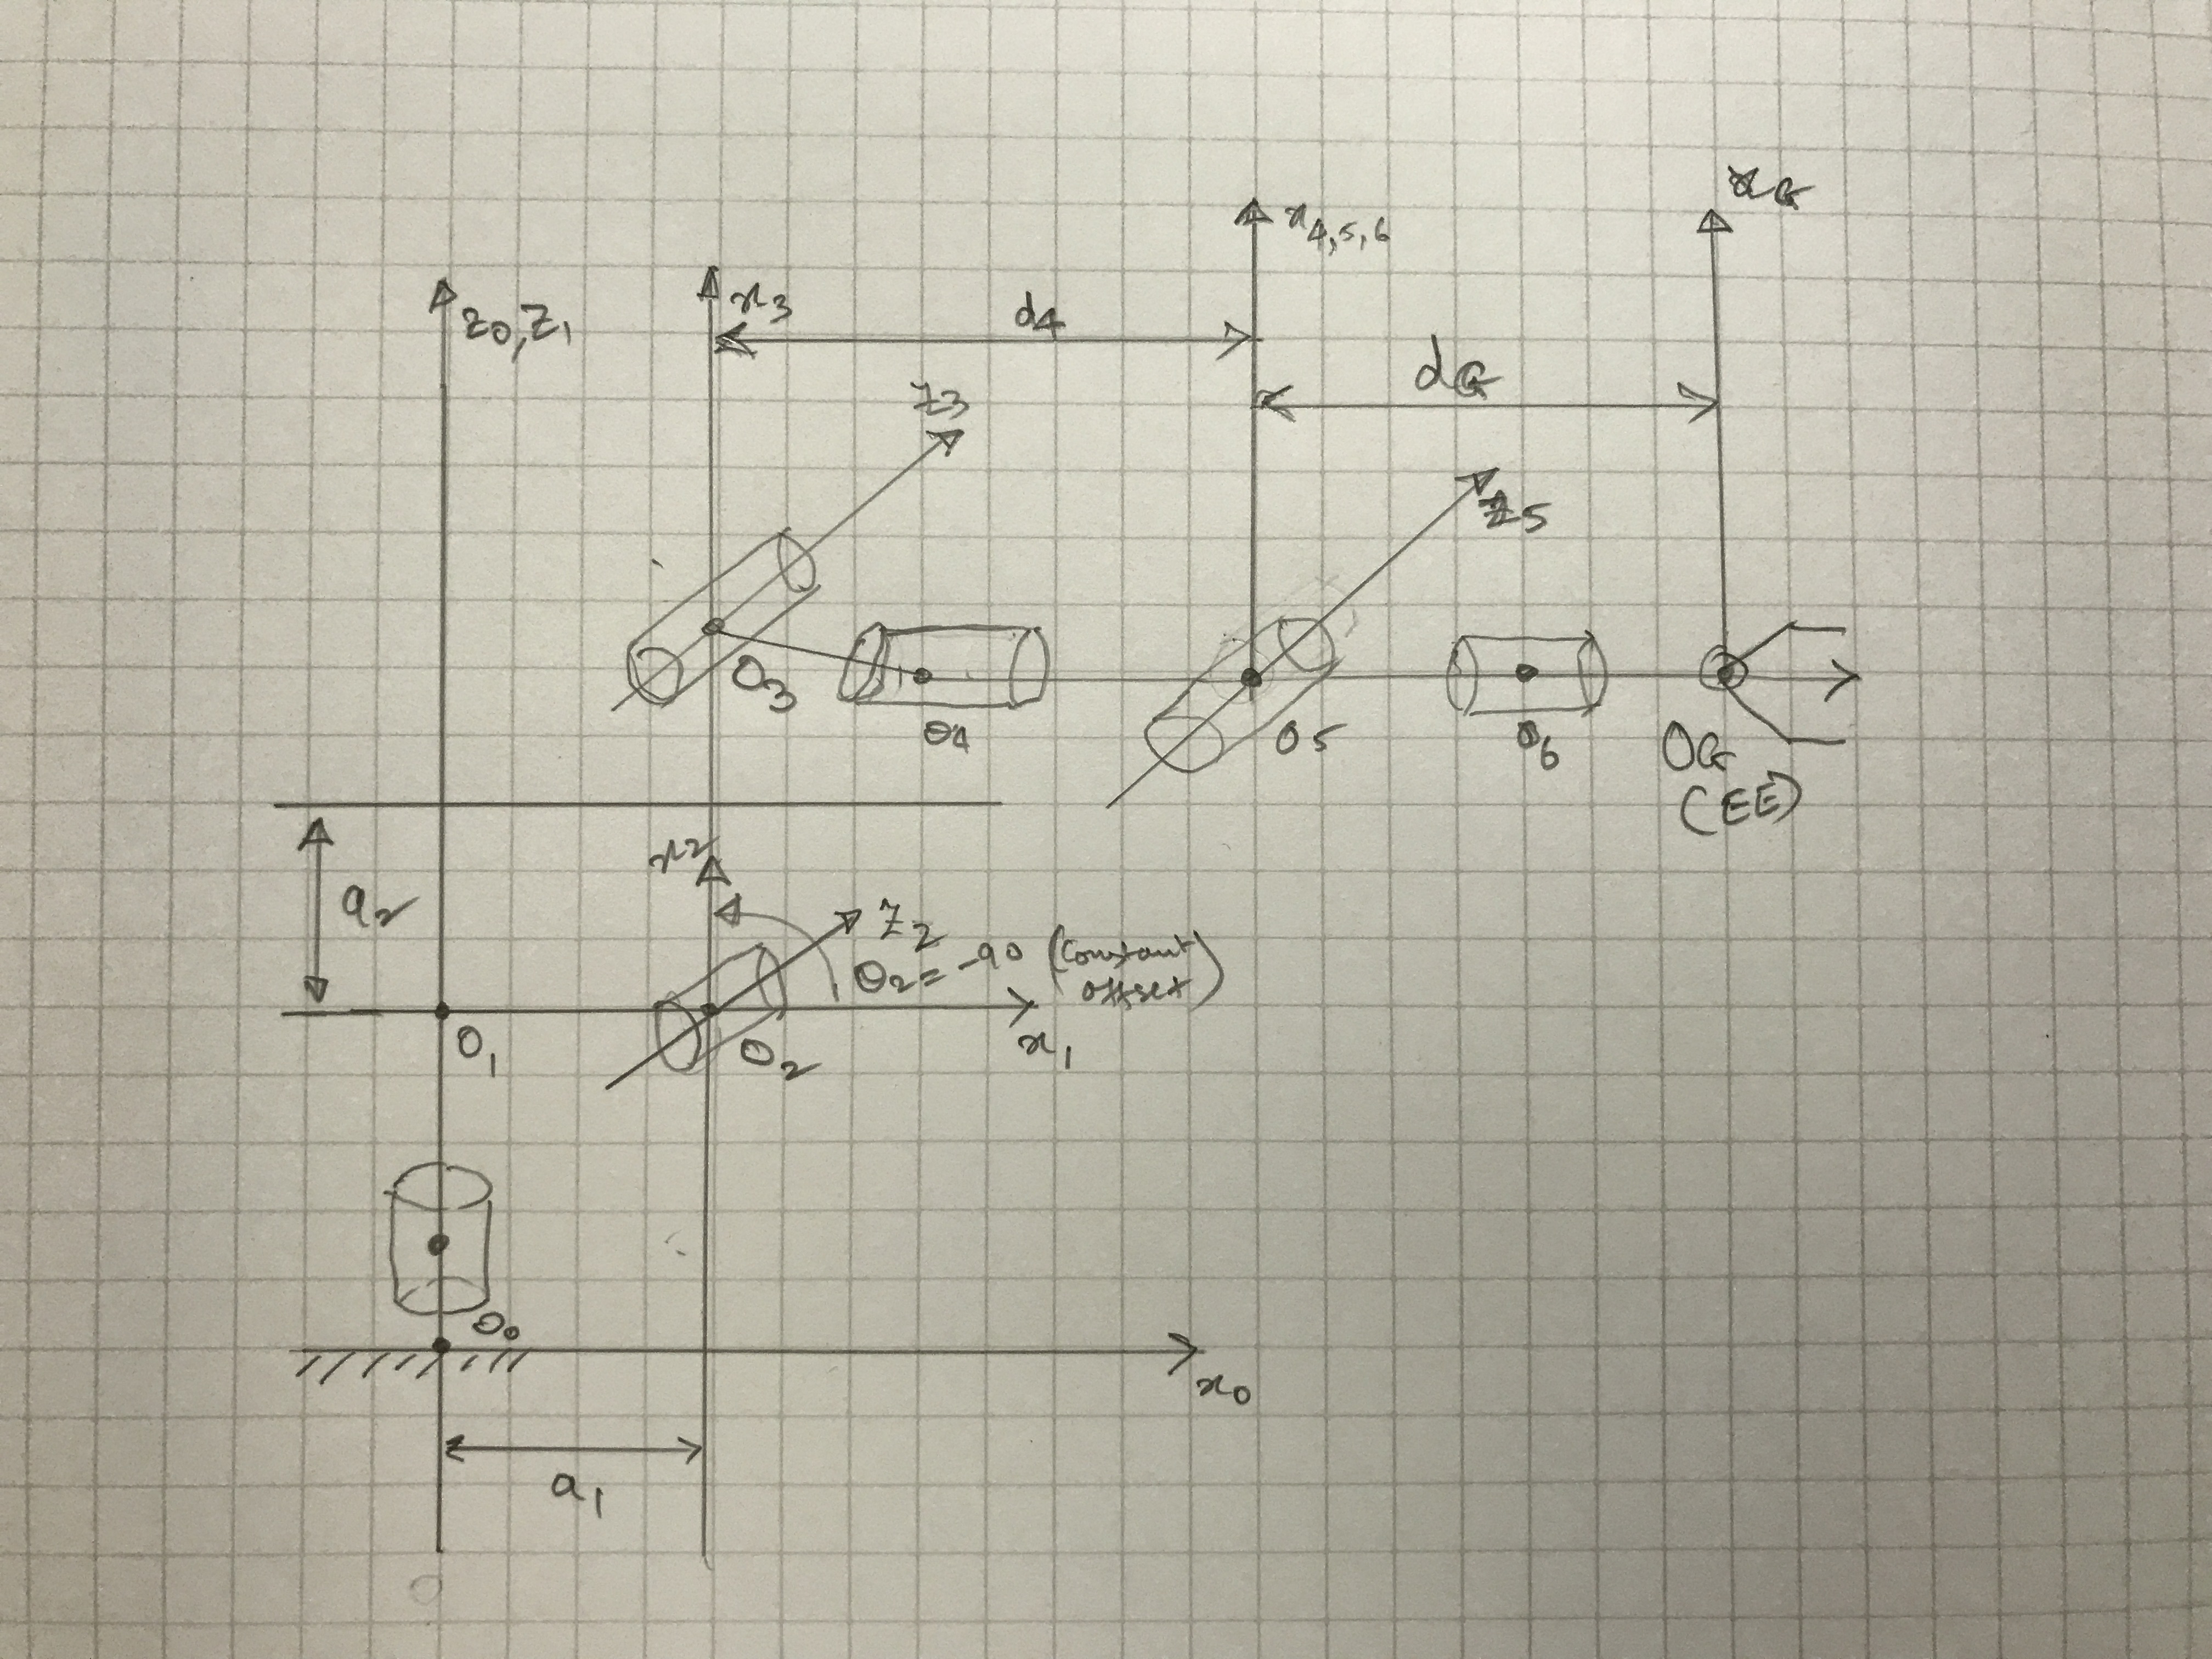 xG
x4,5,6
z0,z1
x3
d4
dG
z3
z5
O3
O4
O5
O6
OG
(EE)
x2
a2
z2
θ2=-90 (constant
offset)
O1
O2
x1
O0
x0
a1